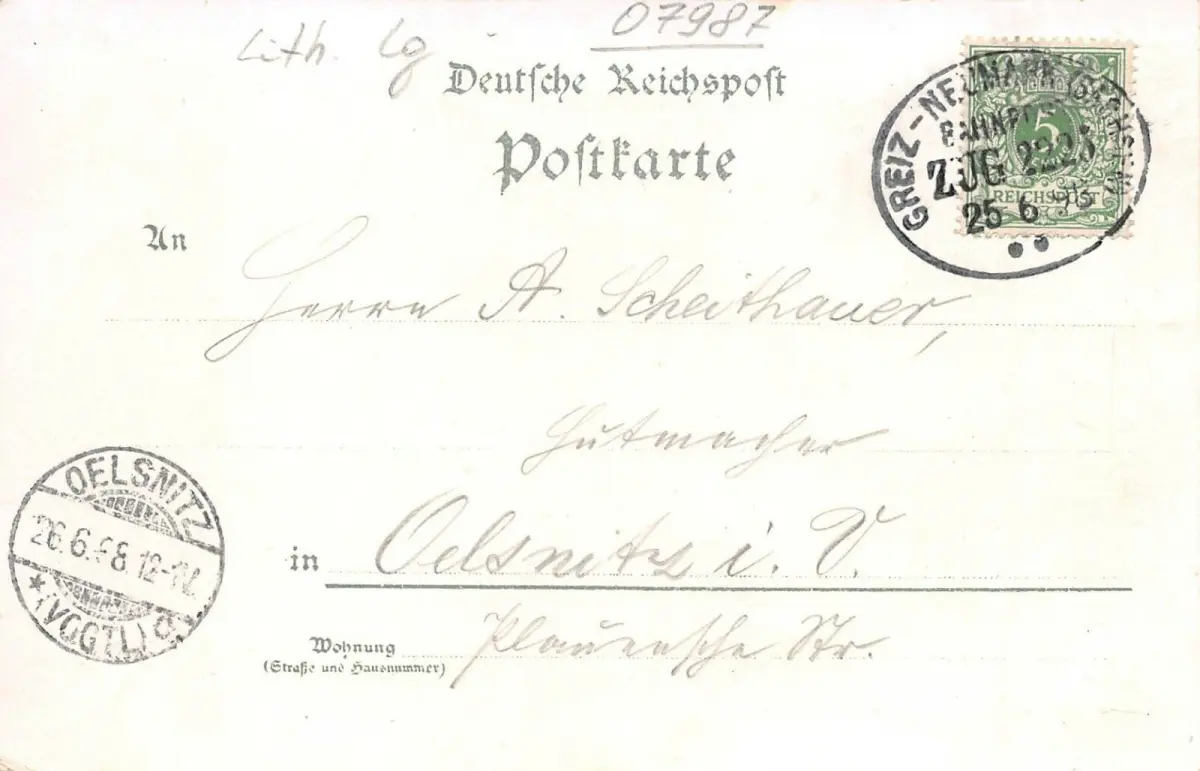 Lith. Lg
07987
Deutsche Reichspost
Postkarte
GREIZ-NEUMARK (SACHSEN)
BAHNPOST
ZUG 2925
25 6
5
REICHSPOST
An
Herrn A. Scheithauer,
Hutmacher
in Oelsnitz i. V.
Wohnung Plauensche Str.
(Straße und Hausnummer)
OELSNITZ
26.6.98.12-1N.
* (VOGTL)